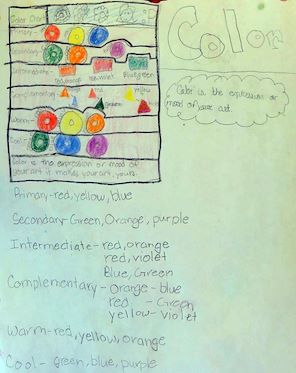 Color Chart
Color
Primary-
Secondary-
Intermediate-
red orange red violet Blue green
Complementary-
yellow
Warm-
Cool-
Color is the expression or mood of
your art it makes your art, yours.
Color is the expression or
mood of your art.
Primary-red, yellow, blue
Secondary-Green, Orange, purple
Intermediate-red, orange
red, violet
Blue, Green
Complementary-orange-blue
red - Green
yellow-violet
Warm-red, yellow, orange
Cool-green, blue, purple